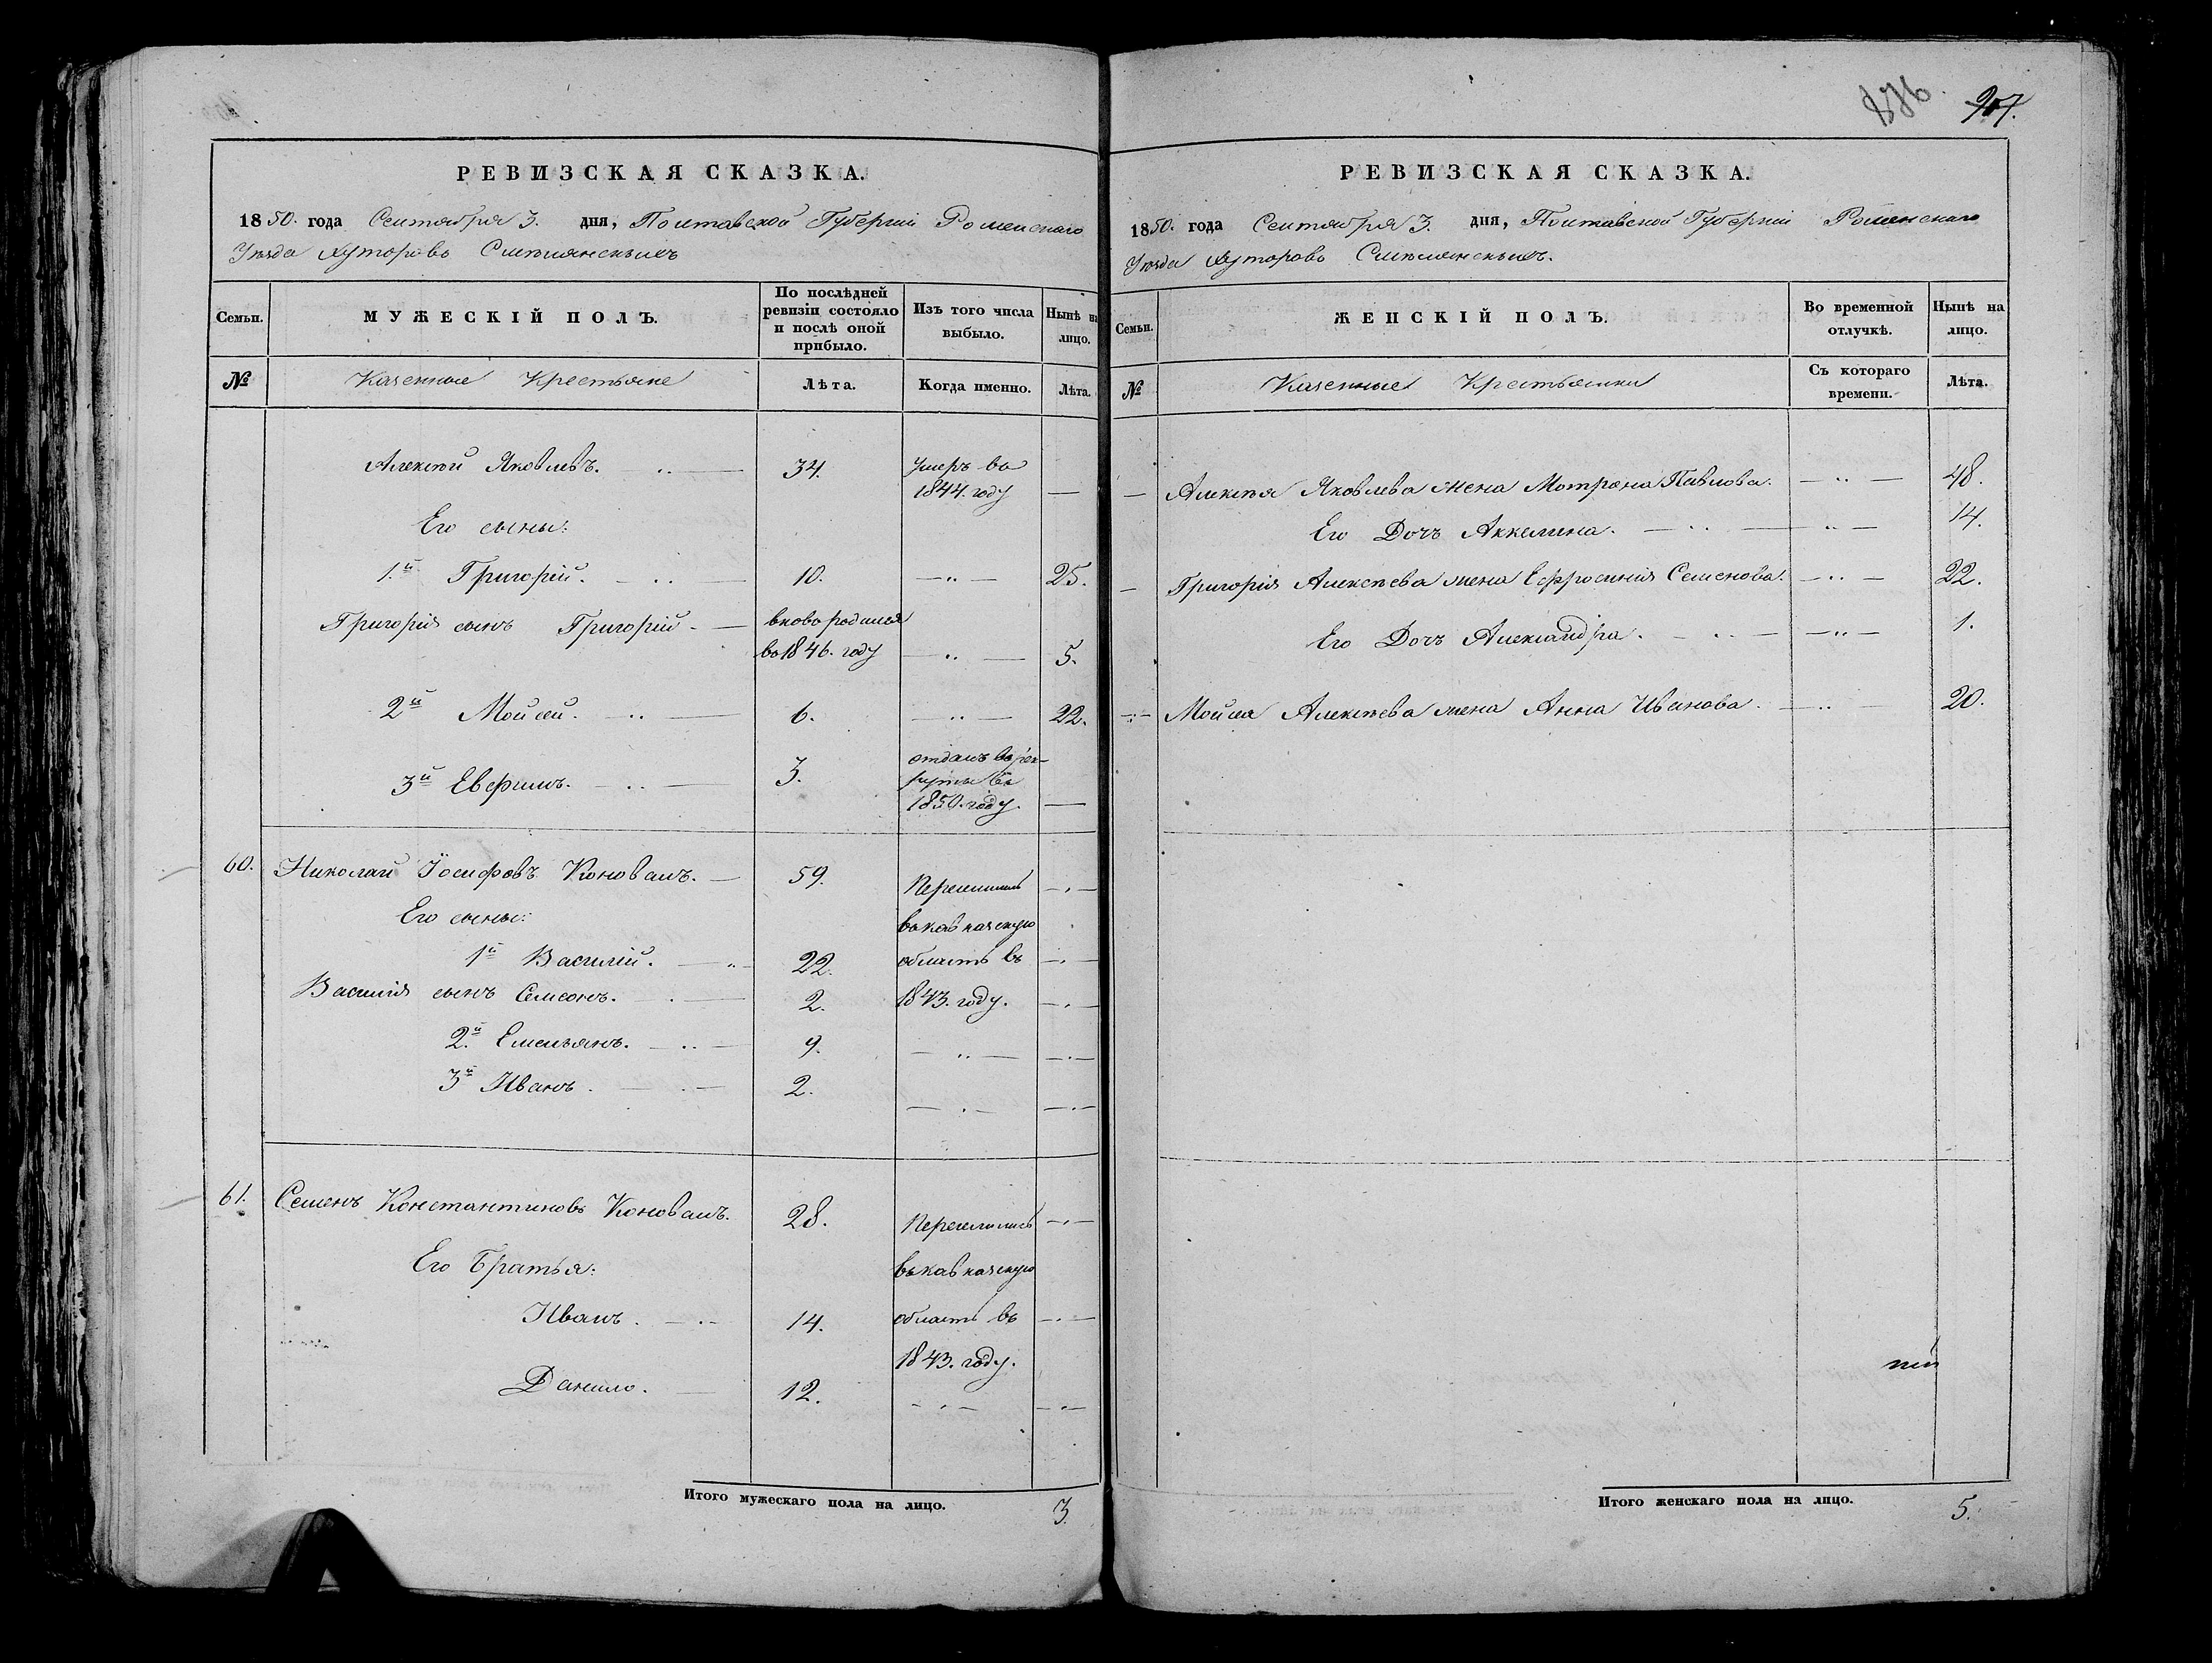 907.
РЕВИЗСКАЯ СКАЗКА.
1850. года Сентября 3. дня, Полтавской Губерніи Роменскаго
Уѣзда Хуторовъ Смѣлянскихъ
Семьи.
МУЖЕСКІЙ ПОЛЪ.
По послѣдней ревизіи состояло и послѣ оной прибыло.
Изъ того числа выбыло.
Нынѣ на лицо.
№
Казенные Крестьяне
Лѣта.
Когда именно.
Лѣта.
Алексѣй Яковлевъ. 34. умеръ въ
1844. году
Его сыны:
1й Григорій. 10. 25.
Григорія сынъ Григорій вново родился
въ 1846. году 5.
2й Мойсей. 6. 22.
3й Евфимъ. 3. отданъ въ рек-
руты въ
1850. году.
60. Николай Іосифовъ Коновалъ. 59. Переселились
Его сыны: въ кавказскую
1й Василій. 22. область въ
Василія сынъ Семенъ. 2. 1843. году.
2й Емельянъ. 9.
3й Иванъ. 2.
61. Семенъ Константиновъ Коновалъ. 28. Переселились
Его Братья: въ кавказскую
Иванъ. 14. область въ
1843. году.
Данило. 12.
Итого мужескаго пола на лицо. 3.
РЕВИЗСКАЯ СКАЗКА.
1850. года Сентября 3. дня, Полтавской Губерніи Роменскаго
Уѣзда Хуторовъ Смѣлянскихъ.
Семьи.
ЖЕНСКІЙ ПОЛЪ.
Во временной отлучкѣ.
Нынѣ на лицо.
№
Казенные Крестьянки
Съ котораго времени.
Лѣта.
Алексѣя Яковлева жена Мотрона Павлова. 48.
Его Дочь Аккелина. 14.
Григорія Алексѣева жена Ефросинія Семенова. 22.
Его Дочь Александра. 1.
Мойсея Алексѣева жена Анна Иванова. 20.
Итого женскаго пола на лицо. 5.